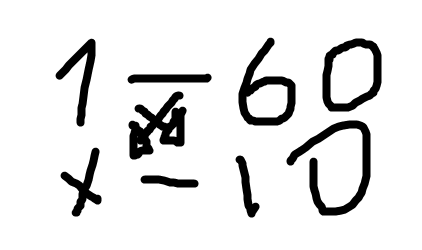 1 — 60
x — 10